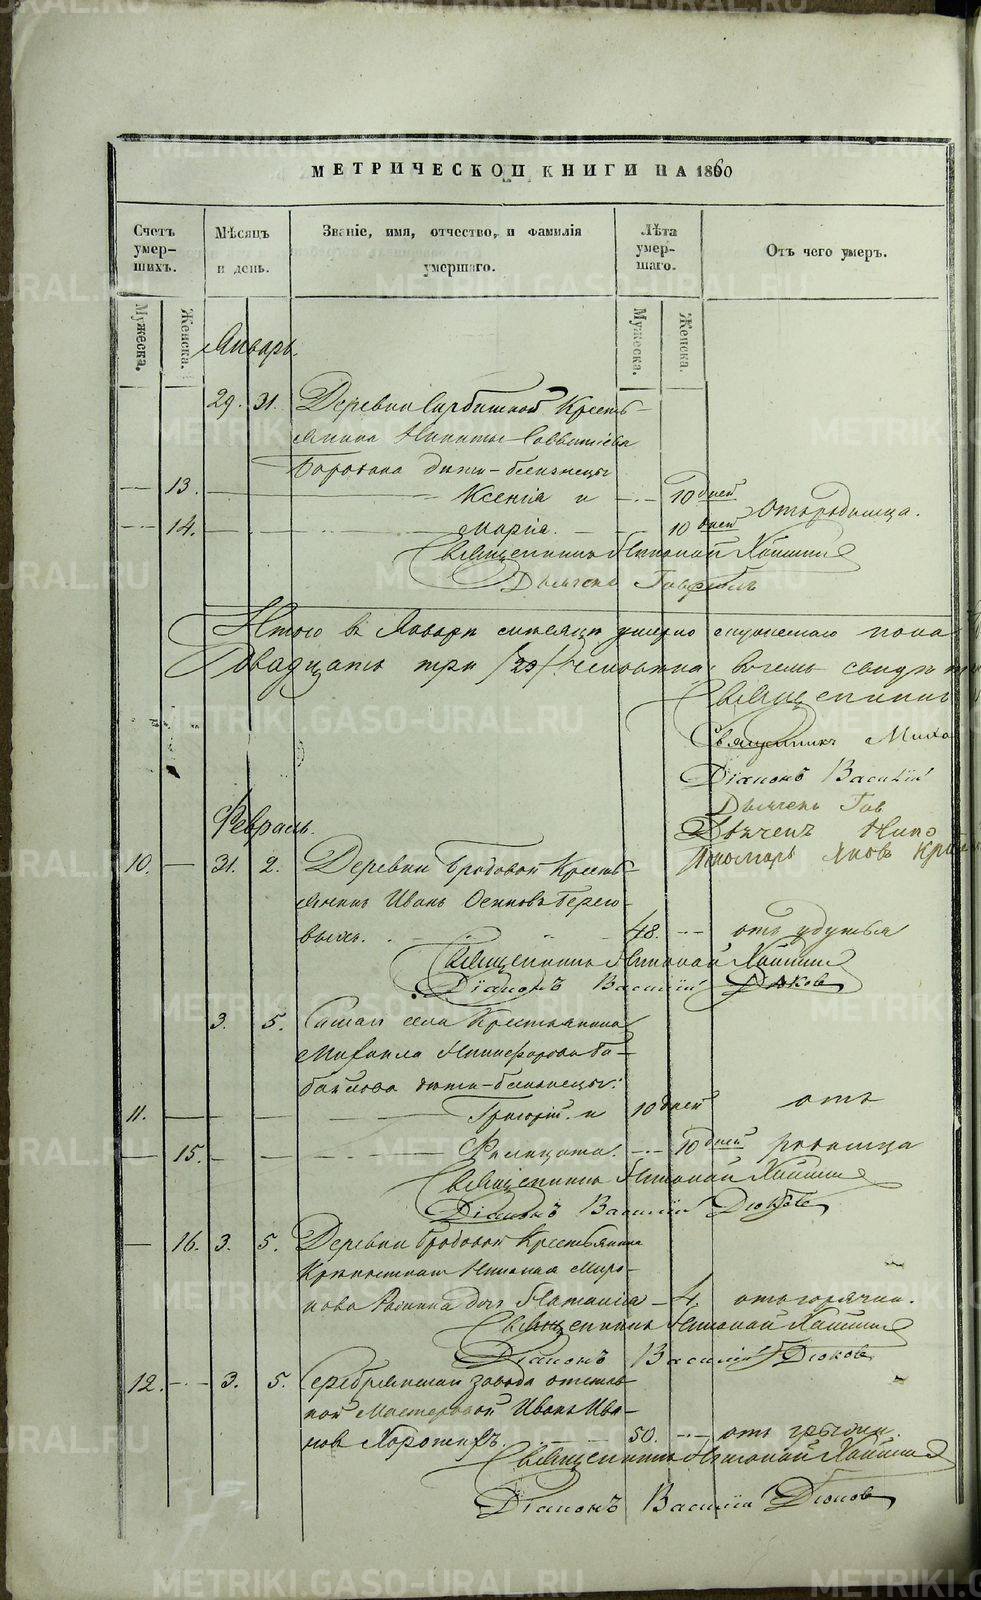 МЕТРИЧЕСКОЙ КНИГИ НА 1860
Счетъ умер-шихъ.
Мѣсяцъ и день.
Званіе, имя, отчество, и фамилія умершаго.
Лѣта умер-шаго.
Отъ чего умеръ.
Мужеска.
Женска.
Мужеска.
Женска.
Январь.
29. 31. Деревни Крестъ-
янина Никиты Савватіева
дѣти-близнецы
13. Ксенія и 10 дней
14. Марія. 10 дней отъ родимца.
Священникъ Николай
Дьячекъ Гавриилъ
Итого въ Январѣ мѣсяцѣ умерло пола
Двадцать три /23/ человѣка; въ чемъ
Священникъ
Священникъ Миха
Діаконъ Василій
Дьячекъ Гав
Дьячекъ Нико
Пономарь Яковъ
Февраль.
10. 31. 2. Деревни Бродовой Кресть-
янинъ Иванъ Осиповъ Берего-
выхъ. 48. отъ удушья
Священникъ Николай
Діаконъ Василій Дюковъ
3. 5. села Крестьянина
Михаила Никифорова Ба-
дѣти-близнецы:
11. Григорій и 10 дней отъ
15. Фелицата. 10 дней родимца
Священникъ Николай
Діаконъ Василій Дюковъ
16. 3. 5. Деревни Бродовой Крестьянина
Николая Миро-
нова дочь Наталія 4. отъ горячки.
Священникъ Николай
Діаконъ Василій Дюковъ
12. 3. 5. Серебрянскаго завода
Мастеровой Иванъ Ива-
новъ 50. отъ грыжи.
Священникъ Николай
Діаконъ Василій Дюковъ
METRIKI.GASO-URAL.RU